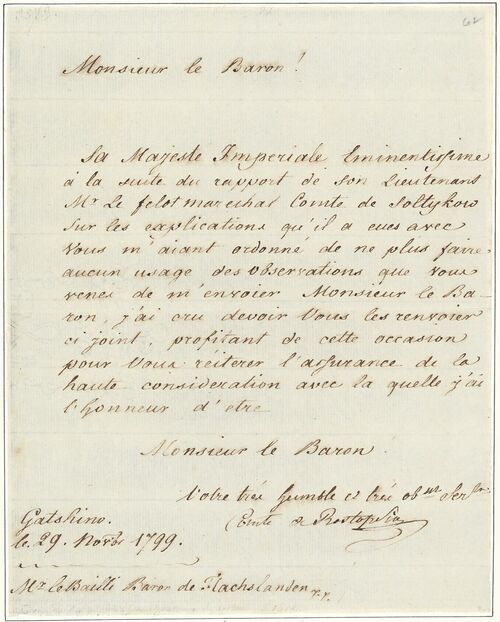 62
Monsieur le Baron!
Sa Majeste Imperiale Eminentissime
à la suite du rapport de son Lieutenant
Mr Le felotmarechal Comte de Soltykow
sur les explications qu'il a eues avec
Vous m'aiant ordonné de ne plus faire
aucun usage des observations que vous
venés de m'envoier Monsieur le Ba-
ron, j'ai cru devoir Vous les renvoier
ci joint, profitant de cette occasion
pour Vous réiterer l'assurance de la
haute consideration avec la quelle j'ai
l'honneur d'etre
Monsieur le Baron!
Votre très humble et très ob
Comte de Rostopchin
Gatshino.
le 29. Novbr 1799.
Mr le Bailli Baron de Flachslanden